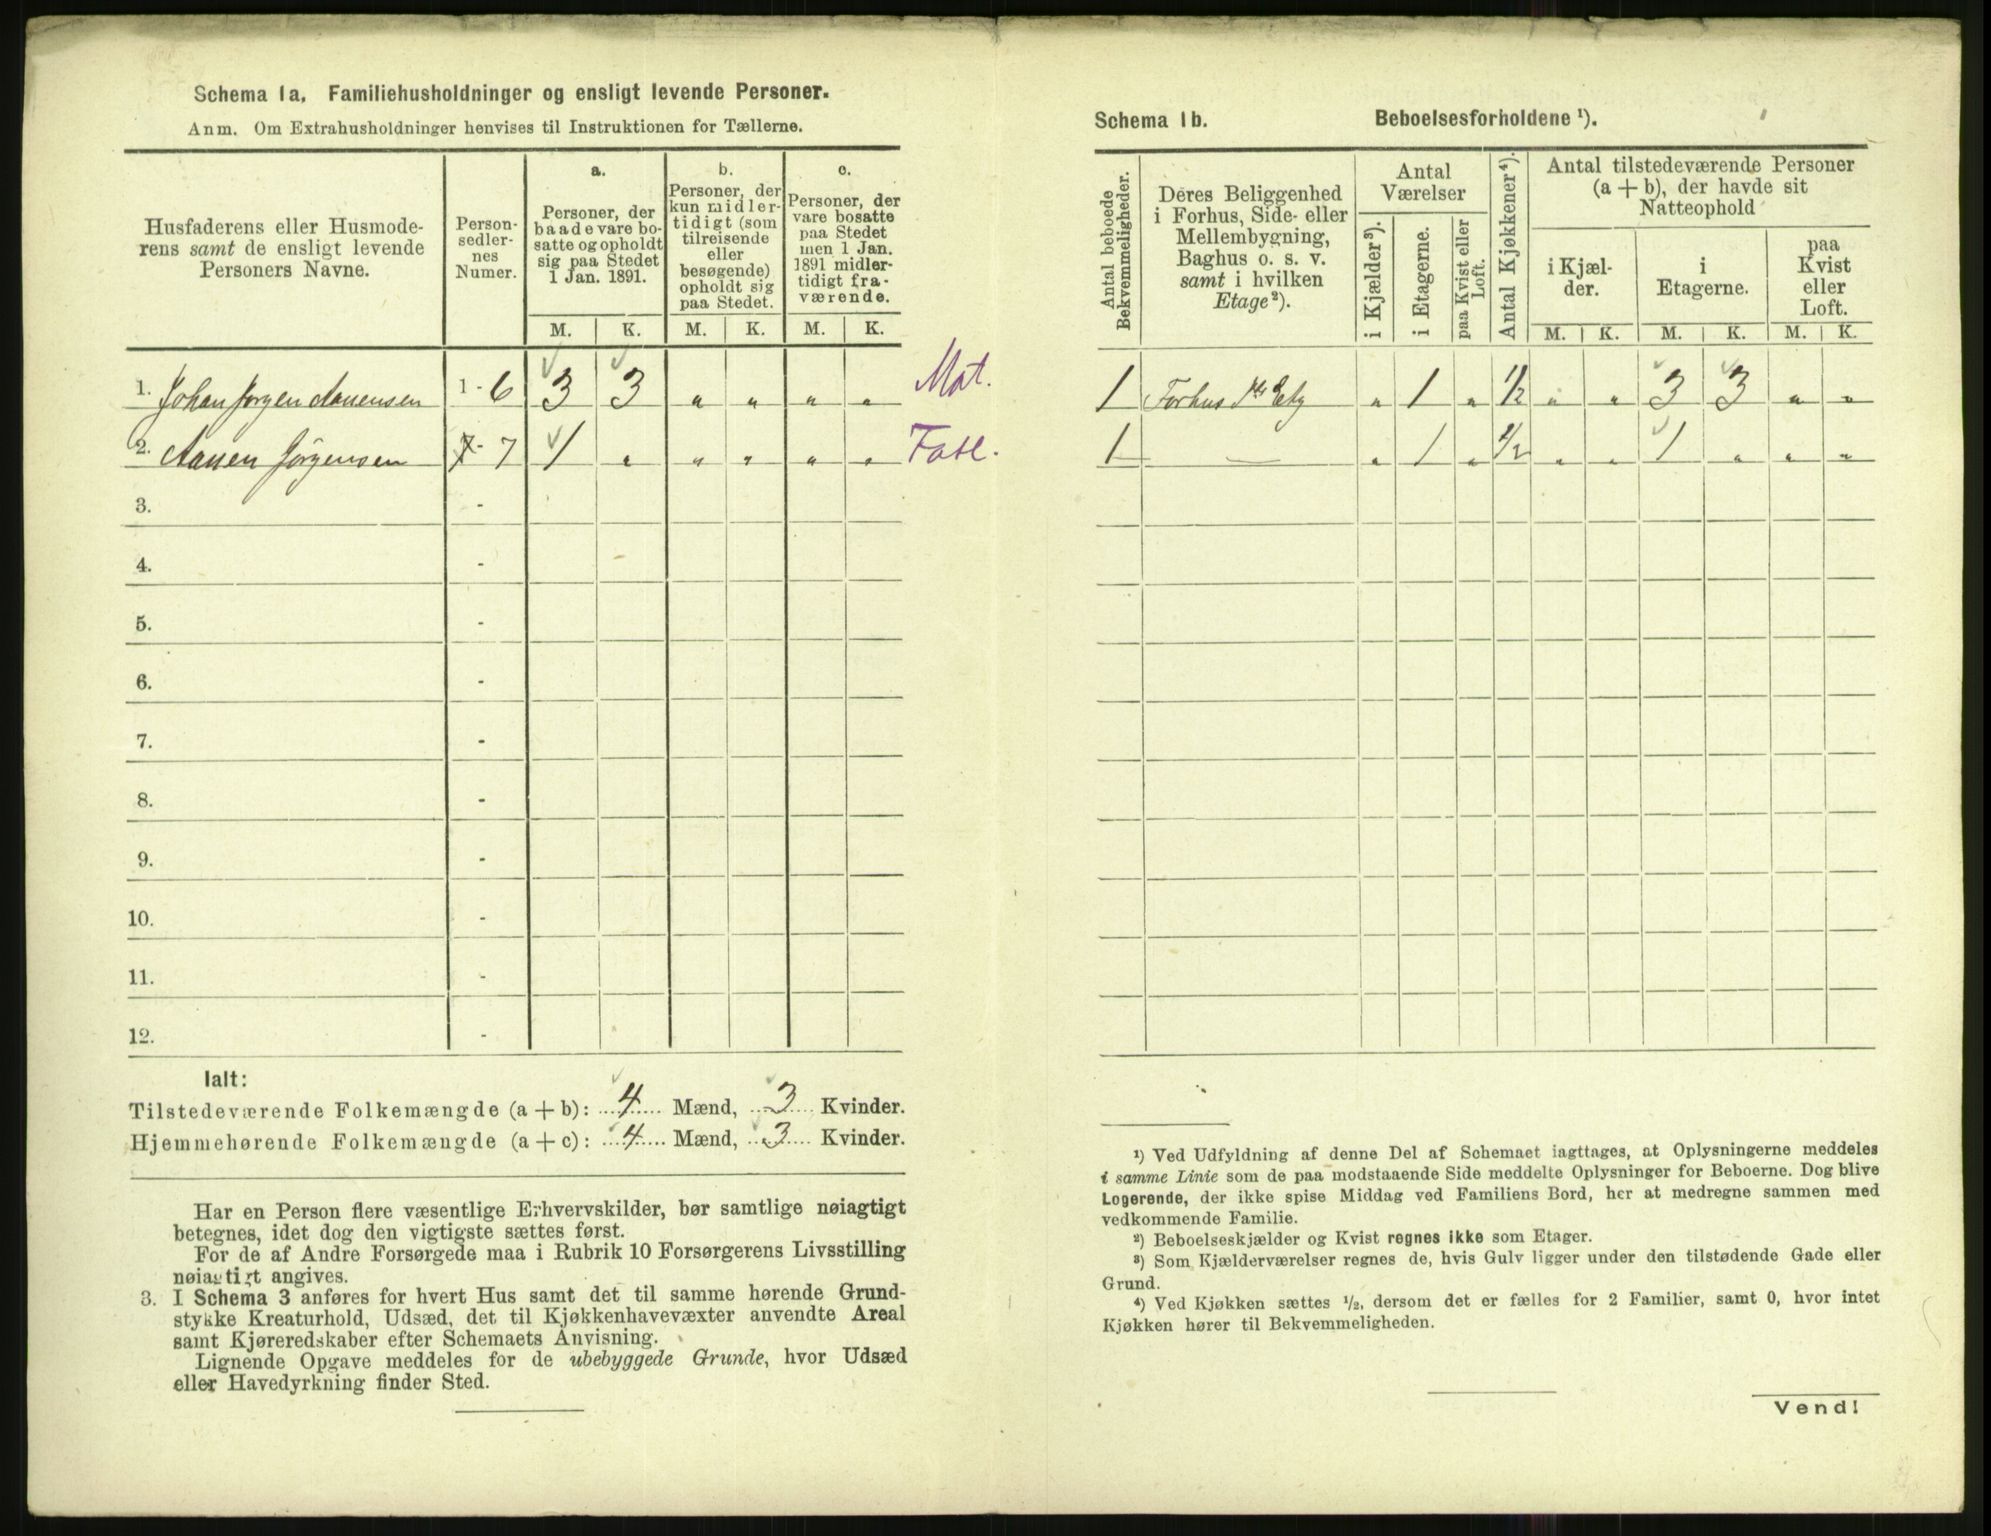 Schema 1a. Familiehusholdninger og ensligt levende Personer.
Anm. Om Extrahusholdninger henvises til Instruktionen for Tællerne.
Husfaderens eller Husmoderens samt de ensligt levende Personers Navne.
Personsedlernes Numer.
a. Personer, der baade vare bosatte og opholdt sig paa Stedet 1 Jan. 1891.
b. Personer, der kun midlertidigt (som tilreisende eller besøgende) opholdt sig paa Stedet.
c. Personer, der vare bosatte paa Stedet men 1 Jan. 1891 midlertidigt fraværende.
M. K. M. K. M. K.
1. Johan Jørgen Aanensen 1 - 6 3 3 „ „ „ „ Mat.
2. Aanen Jørgensen 7 - 7 1 „ „ „ „ „ Fatl.
3. -
4. -
5. -
6. -
7. -
8. -
9. -
10. -
11. -
12. -
Ialt:
Tilstedeværende Folkemængde (a + b): 4 Mænd, 3 Kvinder.
Hjemmehørende Folkemængde (a + c): 4 Mænd, 3 Kvinder.
Har en Person flere væsentlige Erhvervskilder, bør samtlige nøiagtigt
betegnes, idet dog den vigtigste sættes først.
For de af Andre Forsørgede maa i Rubrik 10 Forsørgerens Livsstilling
nøiagtigt angives.
3. I Schema 3 anføres for hvert Hus samt det til samme hørende Grund-
stykke Kreaturhold, Udsæd, det til Kjøkkenhavevæxter anvendte Areal
samt Kjøreredskaber efter Schemaets Anvisning.
Lignende Opgave meddeles for de ubebyggede Grunde, hvor Udsæd
eller Havedyrkning finder Sted.
Schema 1b. Beboelsesforholdene ¹).
Antal beboede Bekvemmeligheder.
Deres Beliggenhed i Forhus, Side- eller Mellembygning, Baghus o. s. v. samt i hvilken Etage²).
Antal Værelser
i Kjælder³).
i Etagerne.
paa Kvist eller Loft.
Antal Kjøkkener⁴).
Antal tilstedeværende Personer (a + b), der havde sit Natteophold
i Kjælder.
i Etagerne.
paa Kvist eller Loft.
M. K. M. K. M. K.
1 Forhus 1ste Etg „ 1 „ 1/2 „ „ 3 3 „ „
1 — „ 1 „ 1/2 „ „ 1 „ „ „
¹) Ved Udfyldning af denne Del af Schemaet iagttages, at Oplysningerne meddeles
i samme Linie som de paa modstaaende Side meddelte Oplysninger for Beboerne. Dog blive
Logerende, der ikke spise Middag ved Familiens Bord, her at medregne sammen med
vedkommende Familie.
²) Beboelseskjælder og Kvist regnes ikke som Etager.
³) Som Kjælderværelser regnes de, hvis Gulv ligger under den tilstødende Gade eller
Grund.
⁴) Ved Kjøkken sættes ½, dersom det er fælles for 2 Familier, samt 0, hvor intet
Kjøkken hører til Bekvemmeligheden.
Vend!